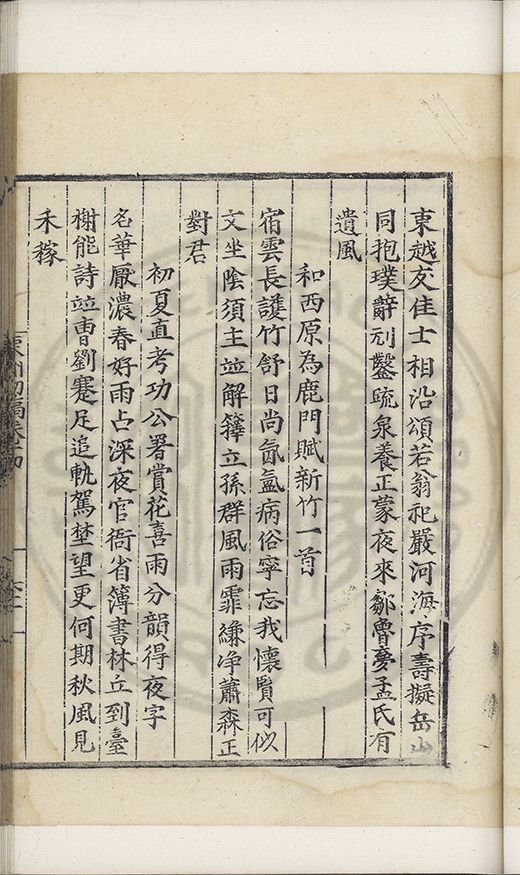 東越友佳士相沿頌若翁祀嚴河海序壽擬岳山
同抱璞辭刓鑿疏泉養正蒙夜來鄒魯夢孟氏有
遺風
和西原為鹿門賦新竹一首
宿雲長護竹舒日尚氤氳病俗寧忘我懷賢可似
文坐陰須主並解籜立孫群風雨霏縑净蕭森正
對君
初夏直考功公署賞花喜雨分韻得夜字
名華厭濃春好雨占深夜官衙省簿書林丘到臺
榭能詩並曹劉蹇足追軌駕埜望更何期秋風見
禾稼